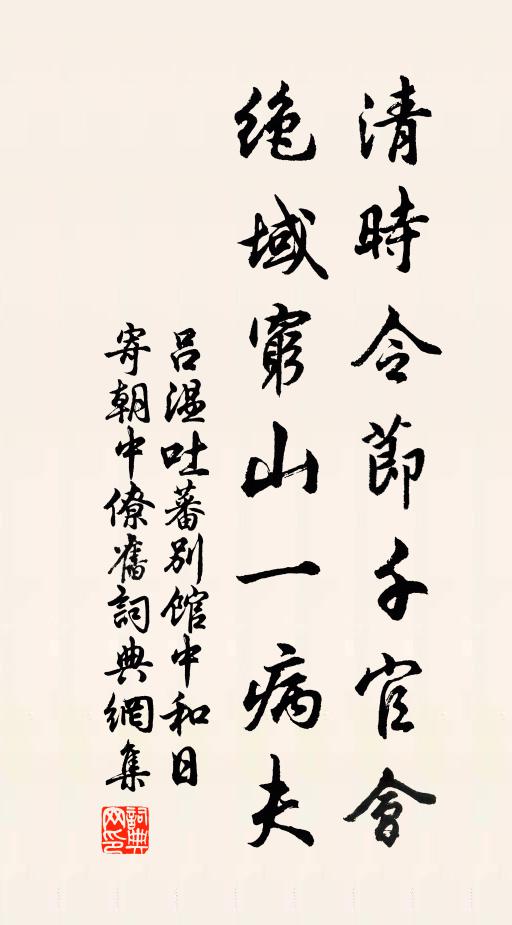 清時令節千官會
絶域窮山一病夫
吕温吐蕃别館中和日
寄朝中僚舊詞典網集
詞典
网印